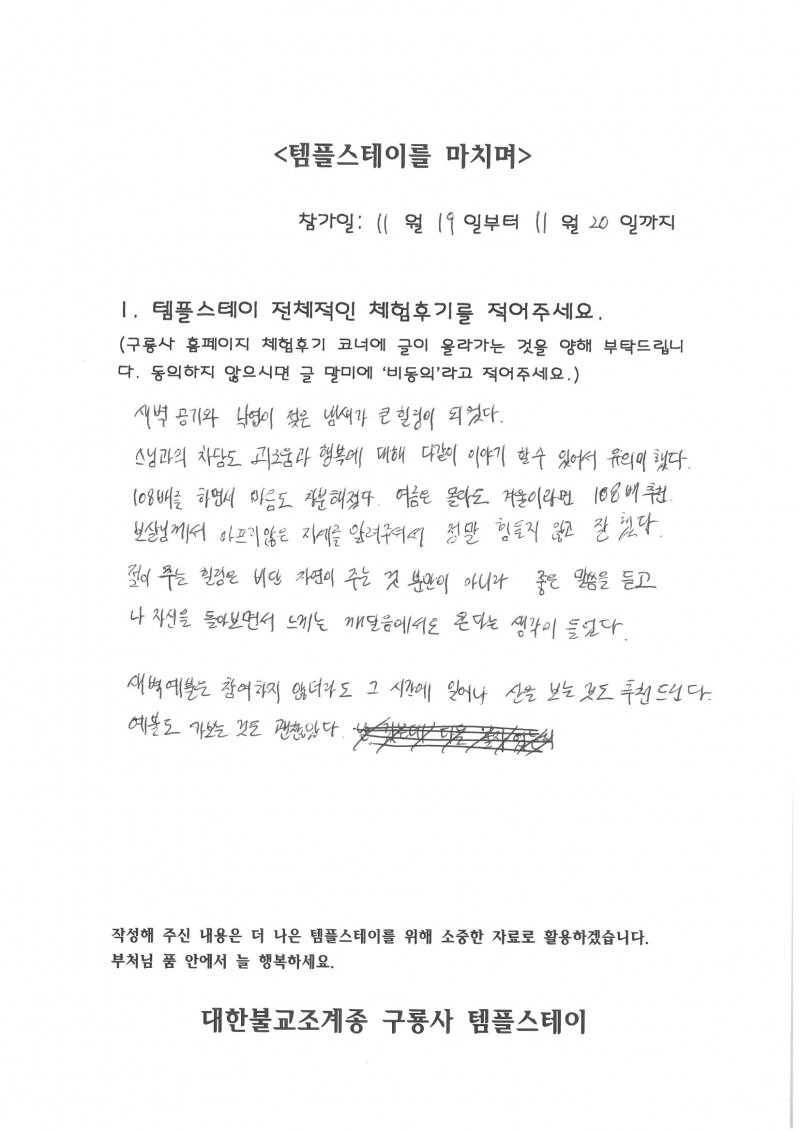 <템플스테이를 마치며>
참가일: 11 월 19 일부터 11 월 20 일까지
1. 템플스테이 전체적인 체험후기를 적어주세요.
(구룡사 홈페이지 체험후기 코너에 글이 올라가는 것을 양해 부탁드립니
다. 동의하지 않으시면 글 말미에 '비동의'라고 적어주세요.)
새벽 공기와 낙엽이 젖은 냄새가 큰 힐링이 되었다.
스님과의 차담도 괴로움과 행복에 대해 다같이 이야기 할 수 있어서 유의미했다.
108배를 하면서 마음도 차분해졌다. 여름은 몰라도 겨울이라면 108배 추천.
보살님께서 아프지않은 자세를 알려주셔서 정말 힘들지 않고 잘 했다.
절이 주는 힐링은 비단 자연이 주는 것 뿐만이 아니라 좋은 말씀을 듣고
나 자신을 돌아보면서 느끼는 깨달음에서도 온다는 생각이 들었다.
새벽예불는 참여하지 않더라도 그 시간에 일어나 산을 보는 것도 추천드린다.
예불도 가보는 것도 괜찮았다.
작성해 주신 내용은 더 나은 템플스테이를 위해 소중한 자료로 활용하겠습니다.
부처님 품 안에서 늘 행복하세요.
대한불교조계종 구룡사 템플스테이